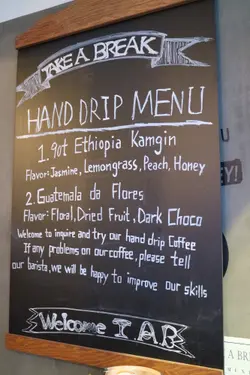 TAKE A BREAK
HAND DRIP MENU
1. 90t Ethiopia Kamgin
Flavor: Jasmine, Lemongrass, Peach, Honey
2. Guatemala da Flores
Flavor: Floral, Dried Fruit, Dark Choco
Welcome to inquire and try our hand drip Coffee
If any problems on our coffee, please tell
our barista, we will be happy to improve our skills
Welcome T.A.B